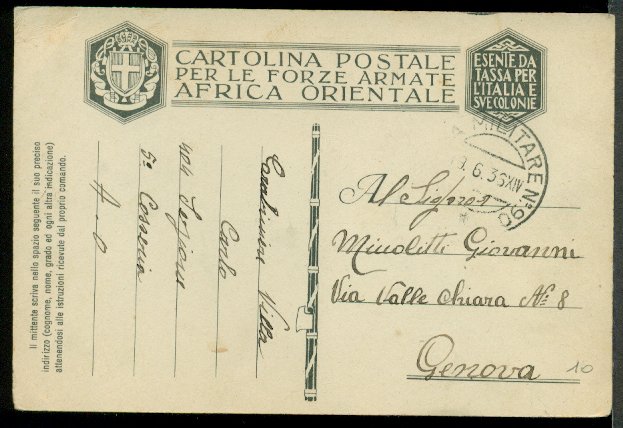 CARTOLINA POSTALE
PER LE FORZE ARMATE
AFRICA ORIENTALE
ESENTE DA
TASSA PER
L'ITALIA E
SUE COLONIE
MILITARE No 90
6.36 XIV
Al Signor
Minoletti Giovanni
Via Valle Chiara No 8
Genova
10
Carabiniere Villa
Carlo
404 Sezione
5a
A.O
Il mittente scriva nello spazio seguente il suo preciso
indirizzo (cognome, nome, grado ed ogni altra indicazione)
attenendosi alle istruzioni ricevute dal proprio comando.